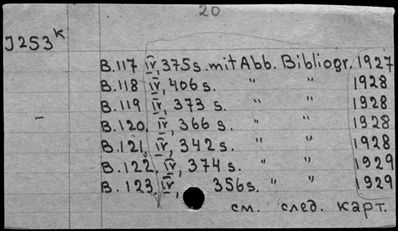 20
J253ᴷ
B.117 IV, 375s. mit Abb. Bibliogr. 1927
B.118 IV, 406 s. " " 1928
B.119 IV, 373 s. " " 1928
B.120. IV, 366 s. " " 1928
B.121. IV, 342 s. " " 1928
B.122. IV, 374 s. " " 1929
B.123. IV, 356s. " " 1929
см. след. карт.